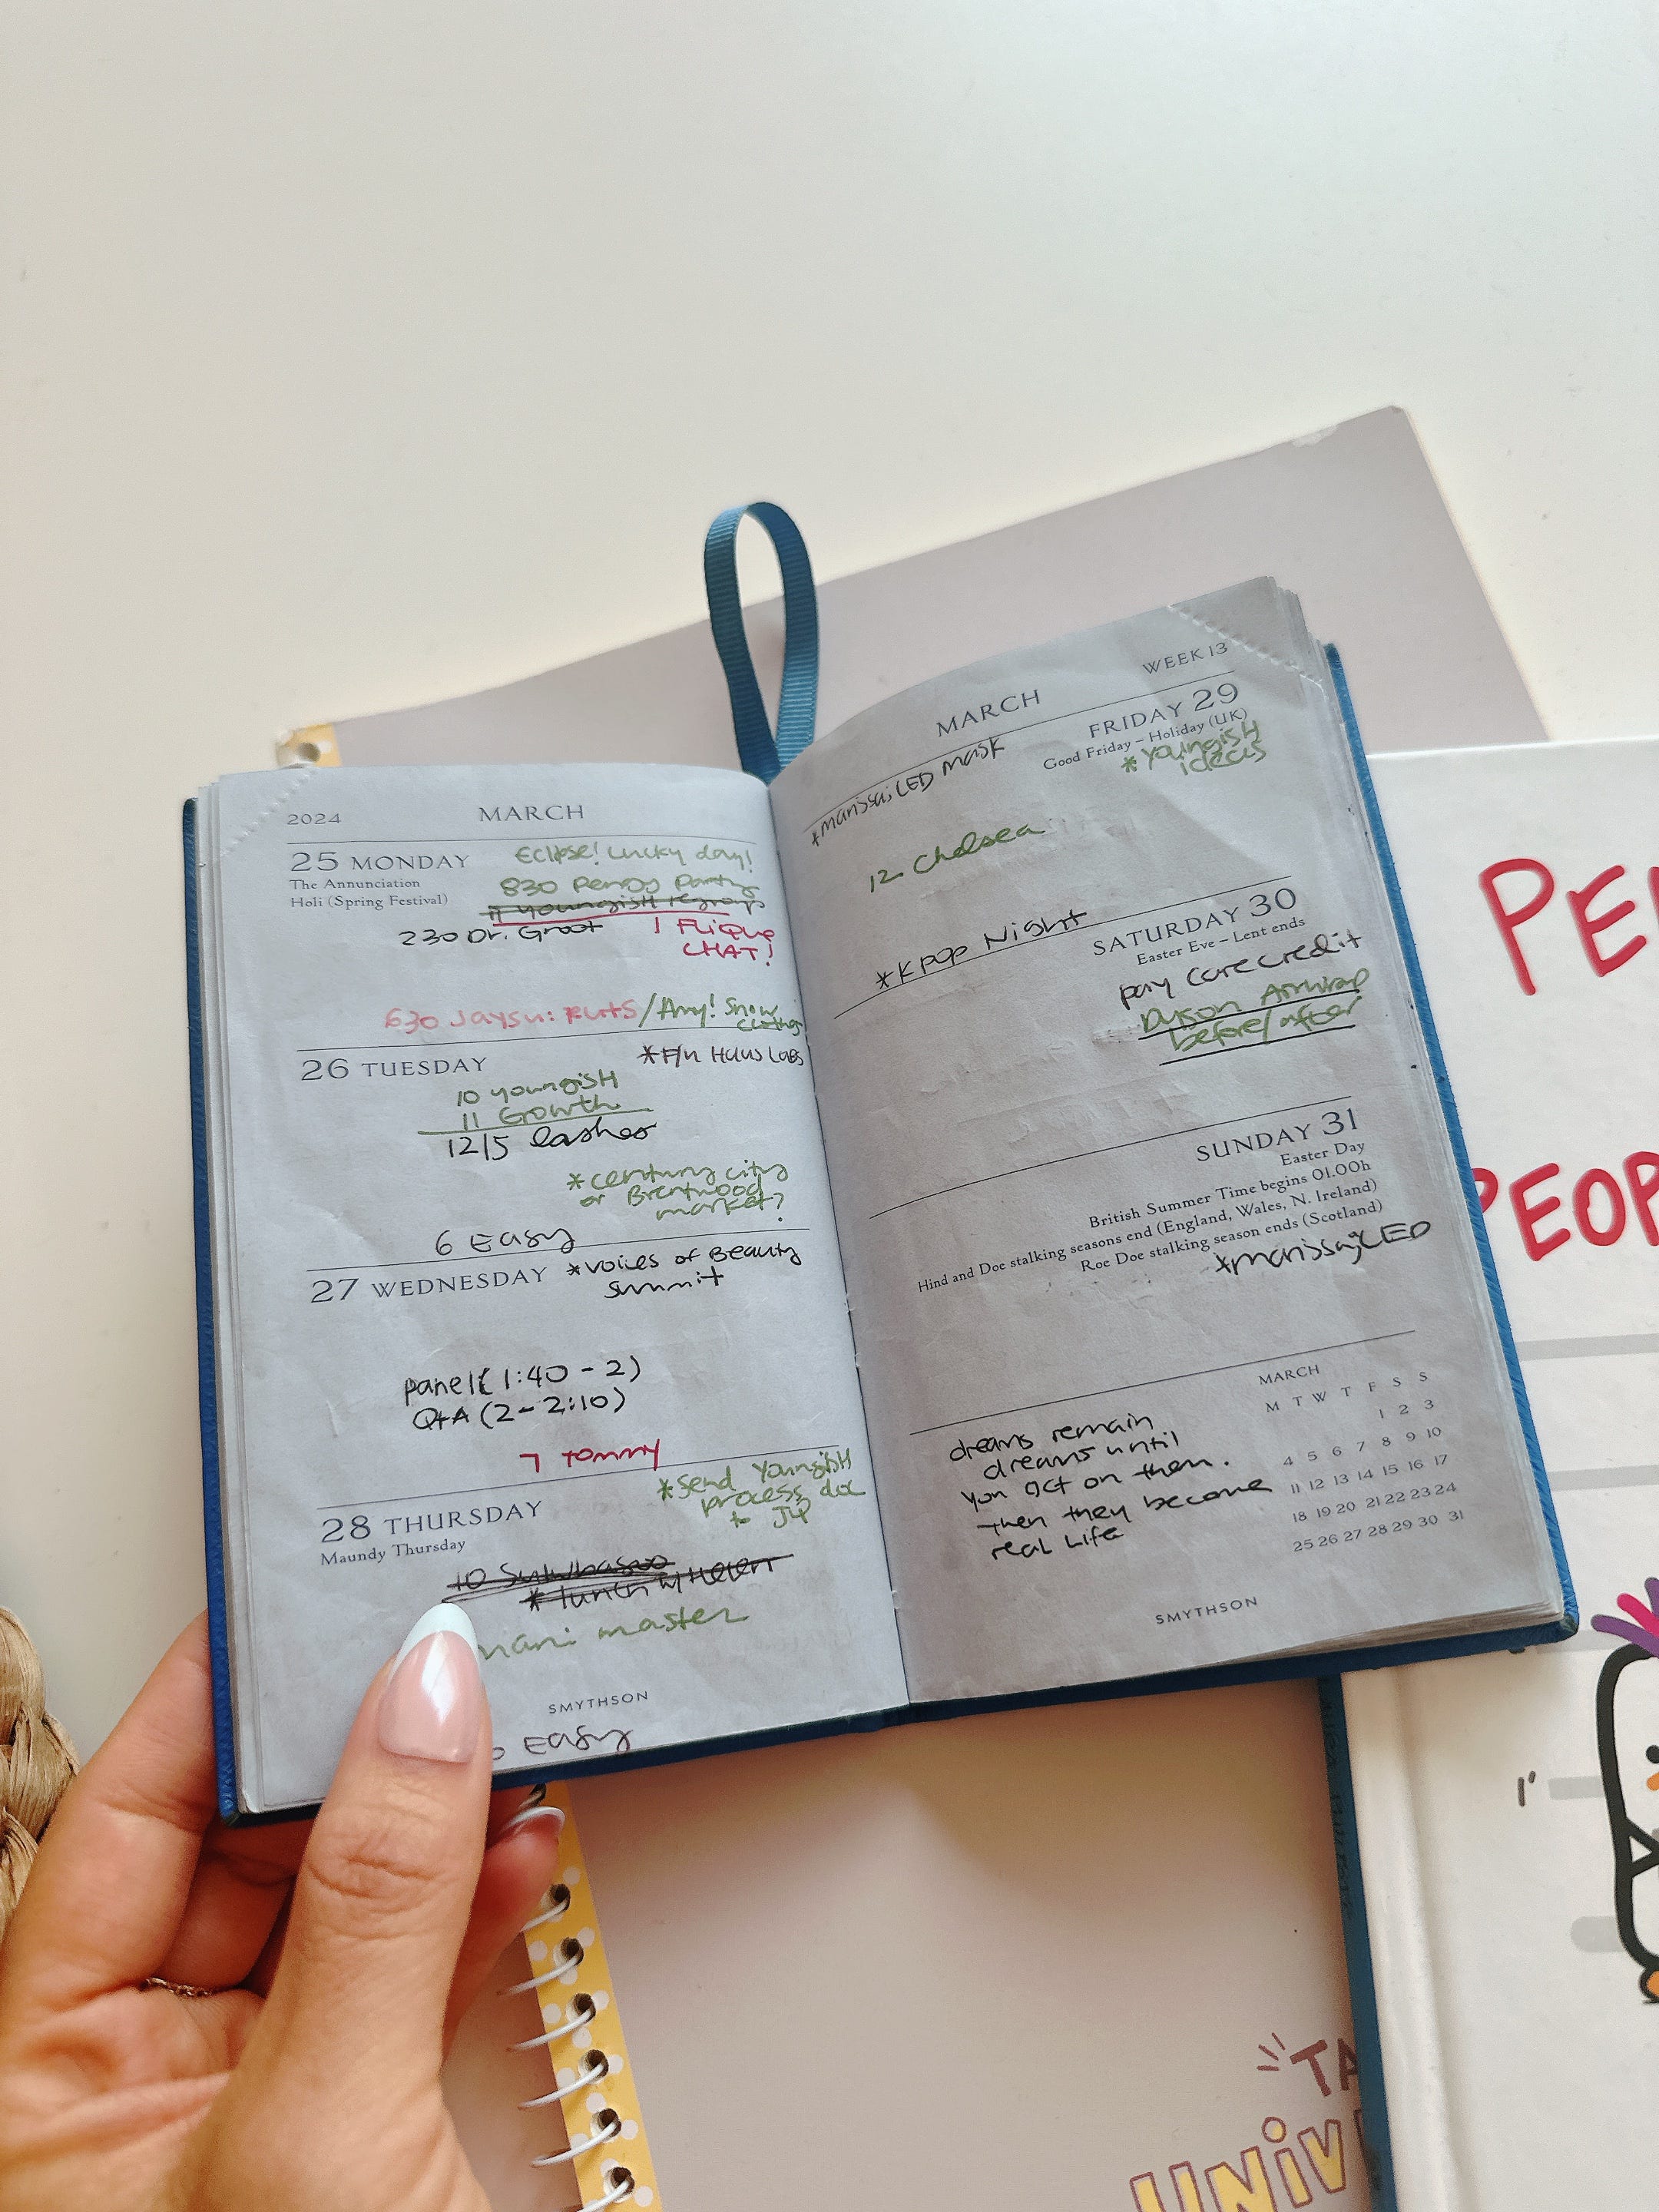 2024 MARCH
25 MONDAY
The Annunciation
Holi (Spring Festival)
Eclipse! Lucky day!
830 Penny Party
11 youngish regroup
230 Dr. Groot
1 Flique
CHAT!
630 Jaysu: RUTS / Amy! Snow
clothes
26 TUESDAY
*F/u Haus Labs
10 youngish
11 Growth
12/5 lashes
*century city
or Brentwood
market?
6 Easy
27 WEDNESDAY
*voices of Beauty
summit
panel (1:40 - 2)
Q+A (2 - 2:10)
7 Tommy
28 THURSDAY
Maundy Thursday
*Send Youngish
process doc
to
10
*lunch w/ Helen
mani master
SMYTHSON
Easy
MARCH WEEK 13
*marissa; LED mask
FRIDAY 29
Good Friday – Holiday (UK)
*youngish
ideas
12 Chelsea
*K pop Night
SATURDAY 30
Easter Eve – Lent ends
pay carecredit
Dyson Airwrap
before/after
SUNDAY 31
Easter Day
British Summer Time begins 01.00h
Hind and Doe stalking seasons end (England, Wales, N. Ireland)
Roe Doe stalking season ends (Scotland)
*marissa; LED
dreams remain
dreams until
you act on them.
then they become
real life
MARCH
M T W T F S S
1 2 3
4 5 6 7 8 9 10
11 12 13 14 15 16 17
18 19 20 21 22 23 24
25 26 27 28 29 30 31
SMYTHSON